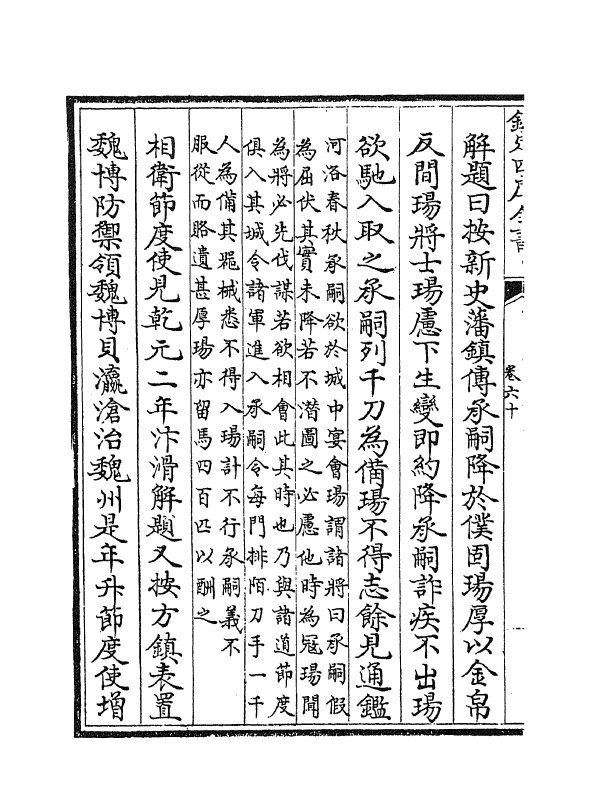 欽定四庫全書
卷六十
解題曰按新史藩鎮傳承嗣降於僕固瑒厚以金帛
反間瑒將士瑒慮下生變即約降承嗣詐疾不出瑒
欲馳入取之承嗣列千刀為備瑒不得志餘見通鑑
河洛春秋承嗣欲於城中宴會瑒謂諸將曰承嗣假
為屈伏其實未降若不潛圖之必慮他時為冦瑒聞
為將必先伐謀若欲相會此其時也乃與諸道節度
俱入其城令諸軍進入承嗣令每門排陌刀手一千
人為備其噐械悉不得入瑒計不行承嗣義不
服從而賂遺甚厚瑒亦留馬四百匹以酬之
相衛節度使見乾元二年汴滑解題又按方鎮表置
魏博防禦領魏博貝瀛滄治魏州是年升節度使增